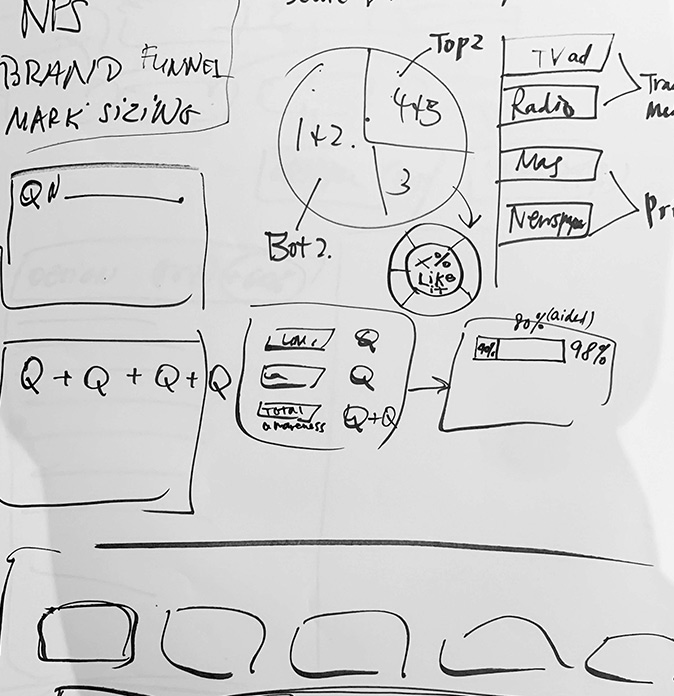 NPS
BRAND FUNNEL
MARK SIZING
Top2
4+5
1+2.
3
Bot2.
X%
Like
it
TV ad
Radio
Mag
Newspaper
QN
Q + Q + Q + Q
Q
Q
TOTAL
awareness
Q+Q
80% (aided)
98%